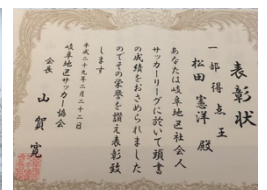 表彰状
一部得点王
松田憲洋殿
あなたは岐阜地区社会人
サッカーリーグに於いて頭書
の成績をおさめられました
のでその栄誉を讃え表彰致
します
平成二十九年二月二十二日
岐阜地区サッカー協会
会長 山賀寛